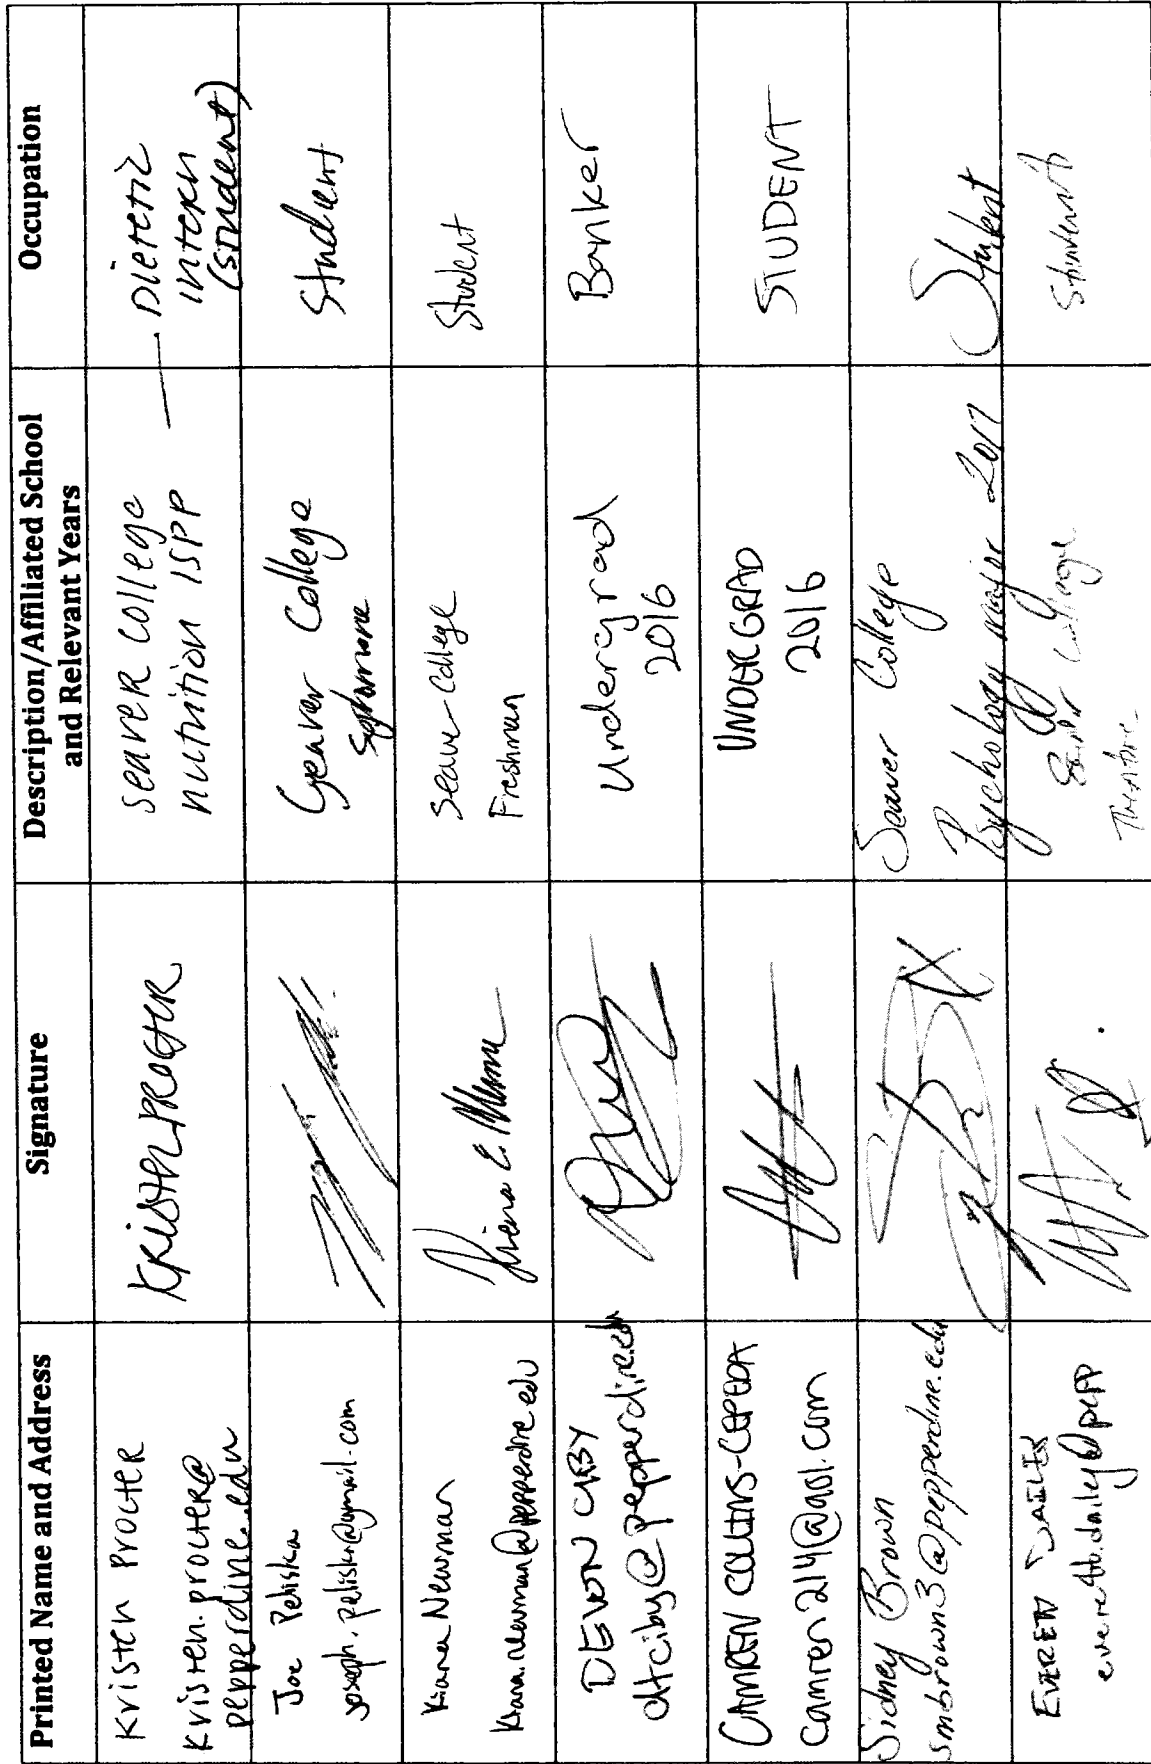 Printed Name and Address
Signature
Description/Affiliated School
and Relevant Years
Occupation
Kristen Procter
kristen.procter@
pepperdine.edu
KRISTEN PROCTER
Seaver College
nutrition ISPP
— Dietetic
intern
(student)
Joe Peliska
joseph.peliska@gmail.com
Seaver College
Sophomore
Student
Kiana Newman
kiana.newman@pepperdine.edu
Seaver College
Freshman
Student
DEVON CIBY
dtciby@pepperdine.edu
Undergrad
2016
Banker
CAMREN COLLINS-CEPEDA
Camren214@aol.com
UNDERGRAD
2016
STUDENT
Sidney Brown
smbrown3@pepperdine.edu
Seaver College
Psychology major 2017
Student
EVERETT DAILEY
everett.dailey@pepp
College
Theatre
Student